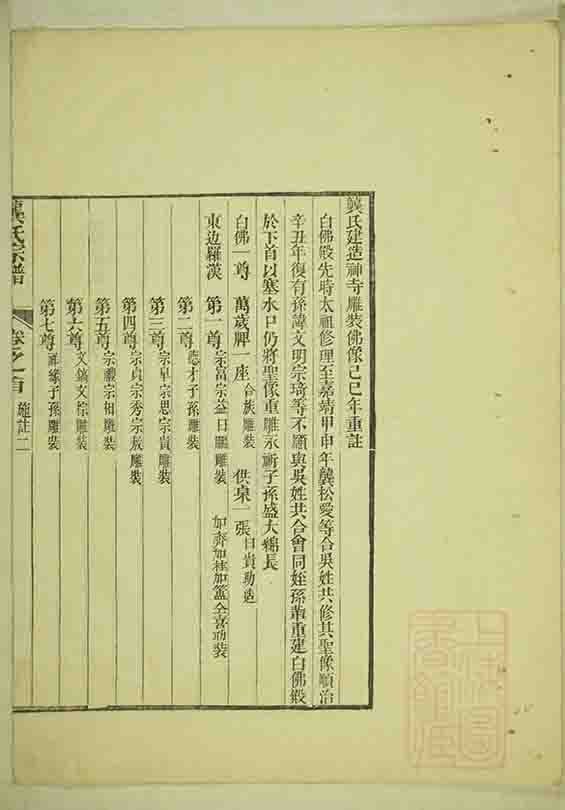 龔氏建造神寺雕裝佛像己巳年重註
白佛殿先時太祖修理至嘉靖甲申年龔松愛等合吳姓共修其聖像順治
辛丑年復有孫諱文明宗琦等不願與吳姓共合會同姪孫輩重建白佛殿
於下首以塞水口仍將聖像重雕永祈子孫盛大綿長
白佛一尊 萬歲牌一座合族雕裝 供桌一張日貴助造
東边羅漢 第一尊宗富宗益日鵬雕裝 如齊如桂如簠仝喜助裝
第二尊 才子孫雕裝
第三尊宗早宗思宗貴雕裝
第四尊宗貞宗秀宗 雕裝
第五尊宗禮宗相雕裝
第六尊文鎬文 雕裝
第七尊祥緣子孫雕裝
龔氏宗譜 卷之首 雕註 二
上海圖書館藏